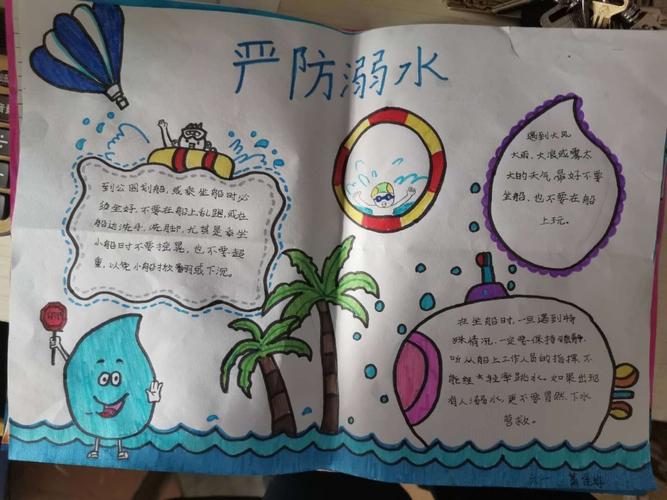 严防溺水
到公园划船,或乘坐船时必
须坐好,不要在船上乱跑,或在
船边洗手、洗脚,尤其是乘坐
小船时不要摇晃,也不要超
重,以免小船掀翻或下沉。
遇到大风
大雨、大浪或雾太
大的天气,最好不要
坐船,也不要在船
上玩。
在坐船时,一旦遇到特
殊情况,一定要保持镇静,
听从船上工作人员的指挥,不
能轻率跳水。如果出现
有人溺水,更不要冒然下水
营救。
六一